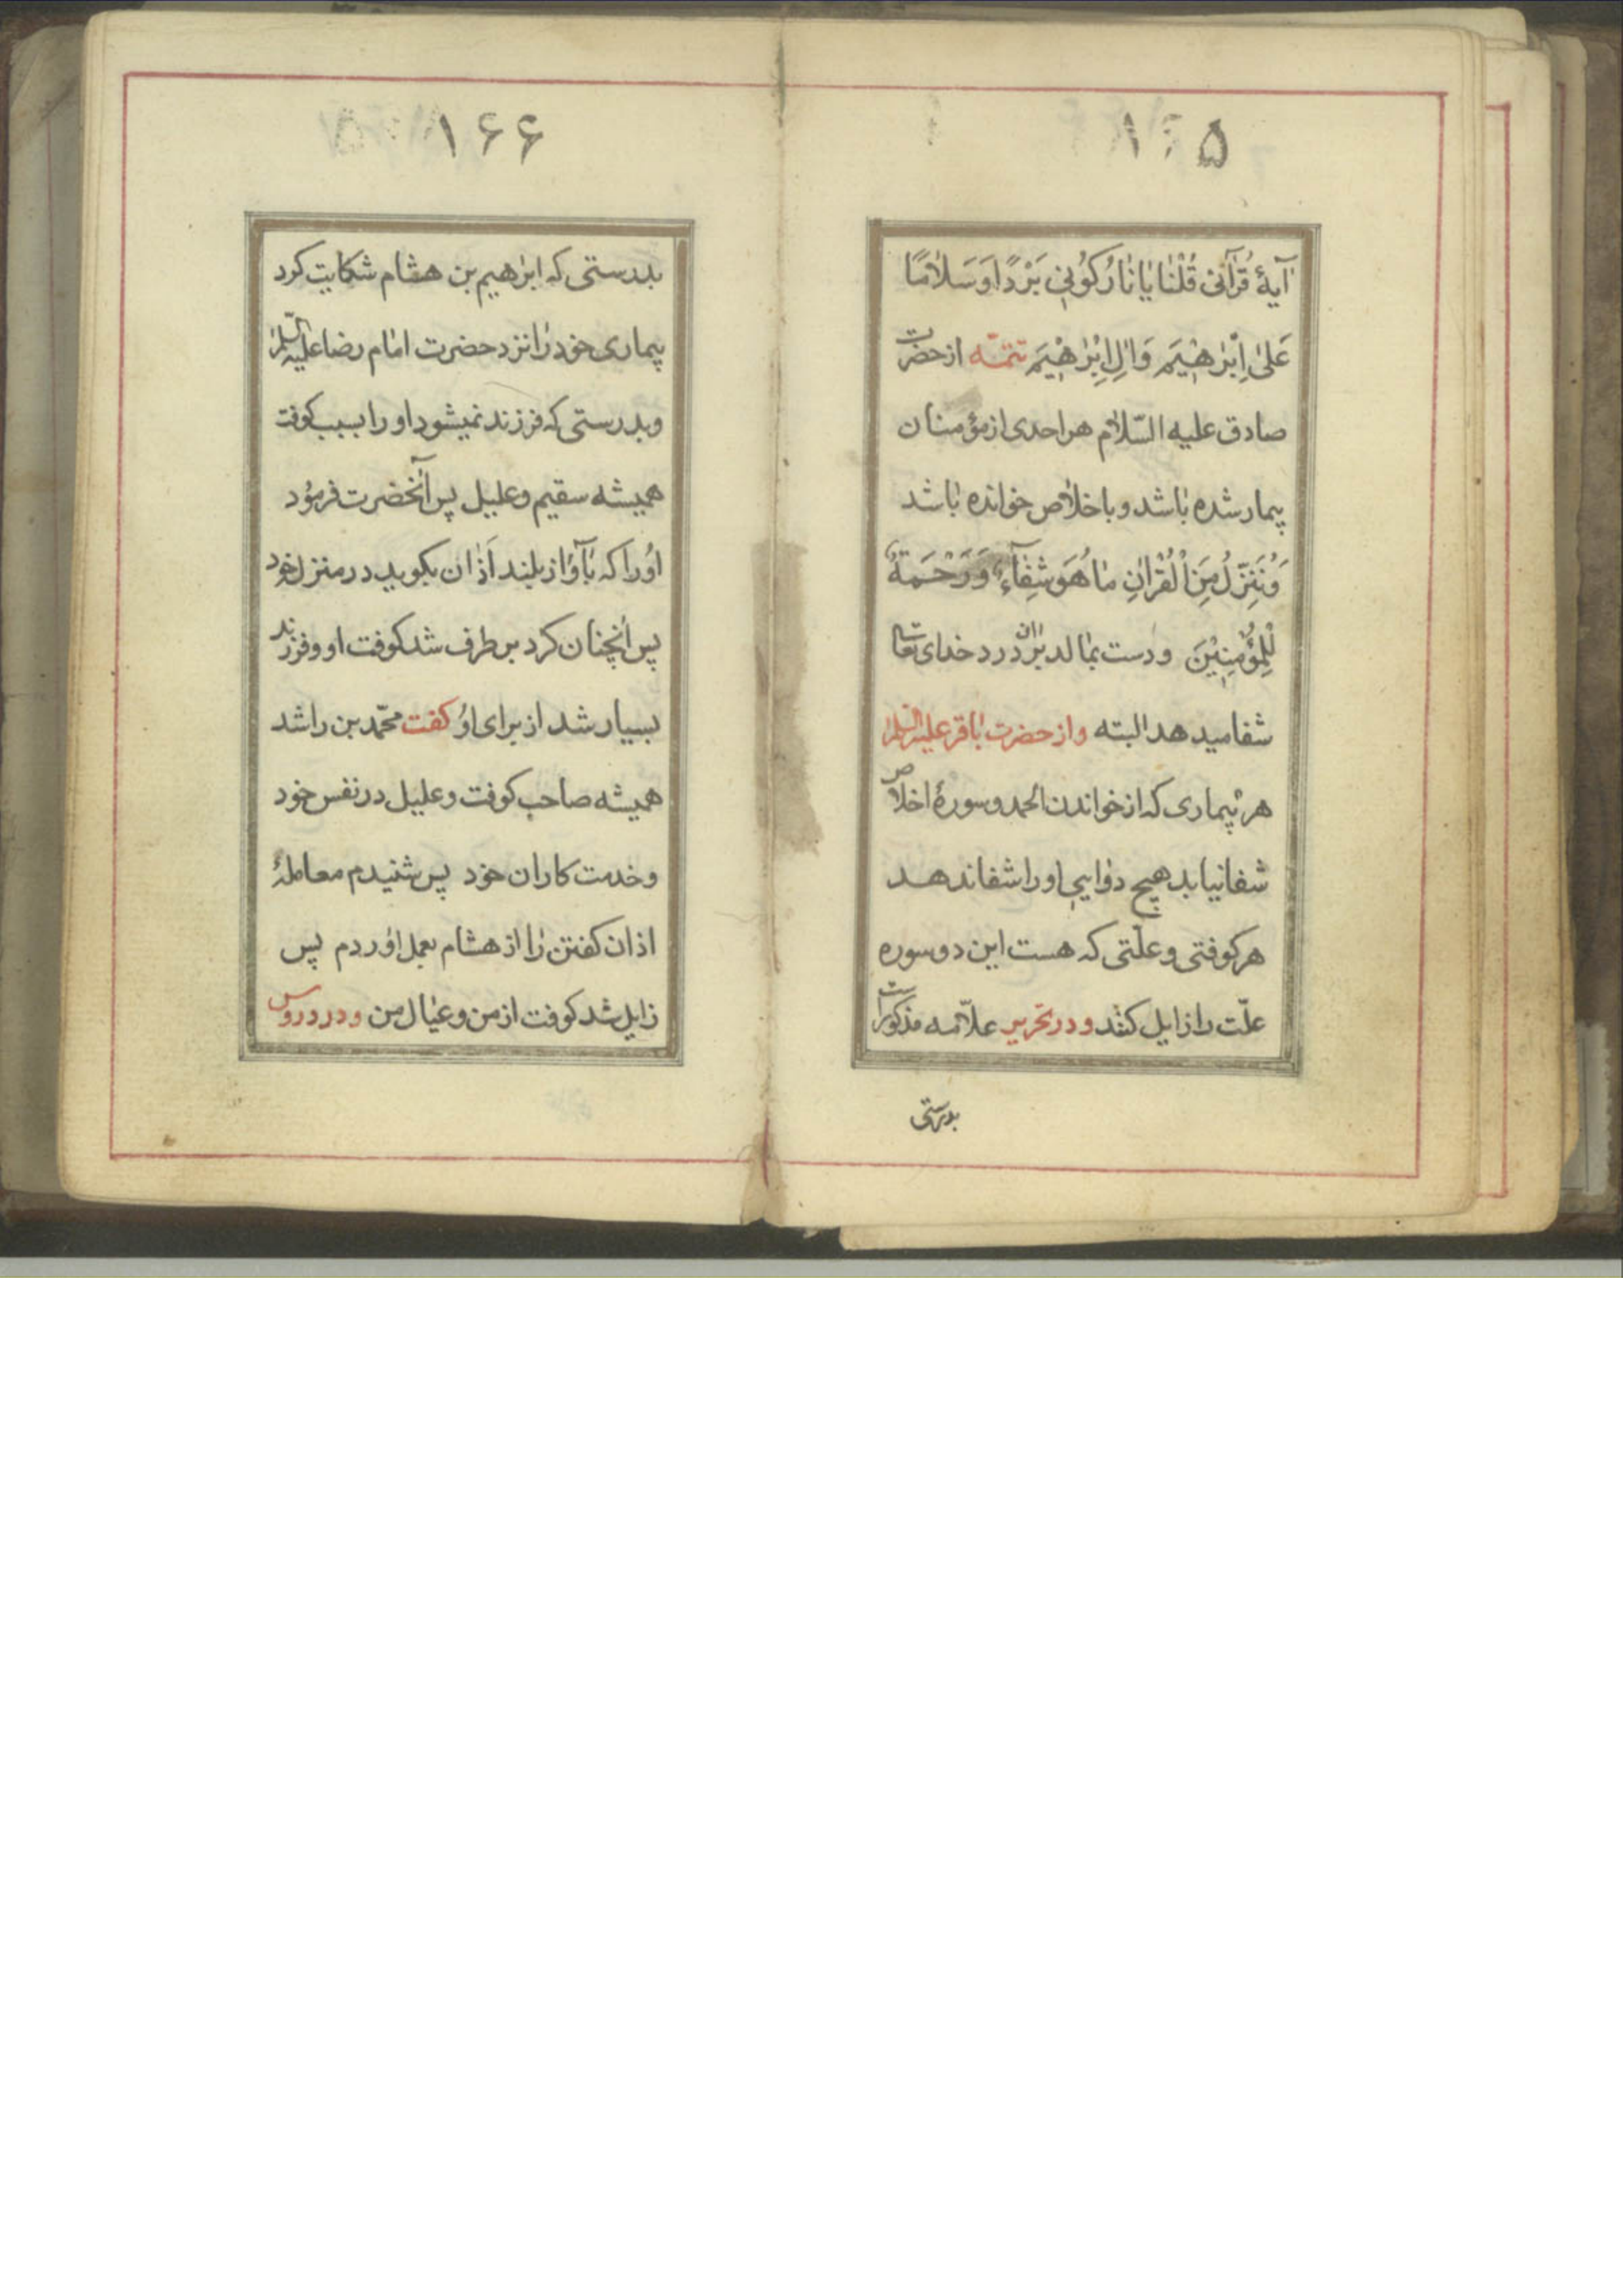 ۱۶۵
آیهٔ قُرآنی قُلْنٰا یٰا نٰارُ کُوُنِی بَرْدًا وَسَلامًا
عَلیٰ اِبْرٰهٖیَم وَاٰلِ اِبْرٰهٖیَم تتمّه از حضرت
صادق علیه السّلام هر احدی از مؤمنان
بیمار شده باشد و باخلاص خوانده باشد
وَنُنَزِّلُ مِنَ الْقُرْاٰنِ مٰا هُوَ شِفٰآءٌ وَرَحْمَةٌ
لِلْمُؤْمِنِیْنَ و دست بمالد بران درد خدای تعالی
شفا میدهد البته و از حضرت باقر علیه السلام
هر بیماری که از خواندن الحمد و سورهٔ اخلاص
شفا نیابد هیچ دوایی او را شفا ندهد
هر کوفتی و علّتی که هست این دو سوره
علّت را زایل کنند و در تحریر علاّمه مذکور است
بدرستی
۱۶۶
بدرستی که ابرٰهیم بن هشام شکایت کرد
بیماری خود را نزد حضرت امام رضا علیه السّلام
و بدرستی که فرزند نمیشود او را بسبب کوفت
همیشه سقیم و علیل پس آنحضرت فرمود
اورا که بآواز بلند اَذان بکوید در منزل خود
پس آنچنان کرد بر طرف شد کوفت او و فرزند
بسیار شد از برای او کفت محمّد بن راشد
همیشه صاحب کوفت و علیل در نفس خود
و خدمت کاران خود پس شنیدم معاملهٔ
اذان کفتن را از هشام بعمل اوردم پس
زایل شد کوفت از من و عیال من و در دروس